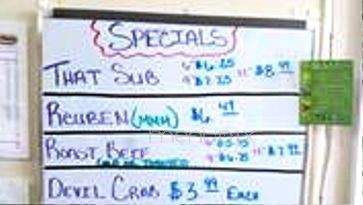 SPECIALS
THAT SUB 6" $6.25 9" $7.25 12" $8.99
REUBEN (MMM) $6.49
ROAST BEEF 6" $5.75 9" $6.75 12" $7.99
DEVIL CRAB $3.99 EACH